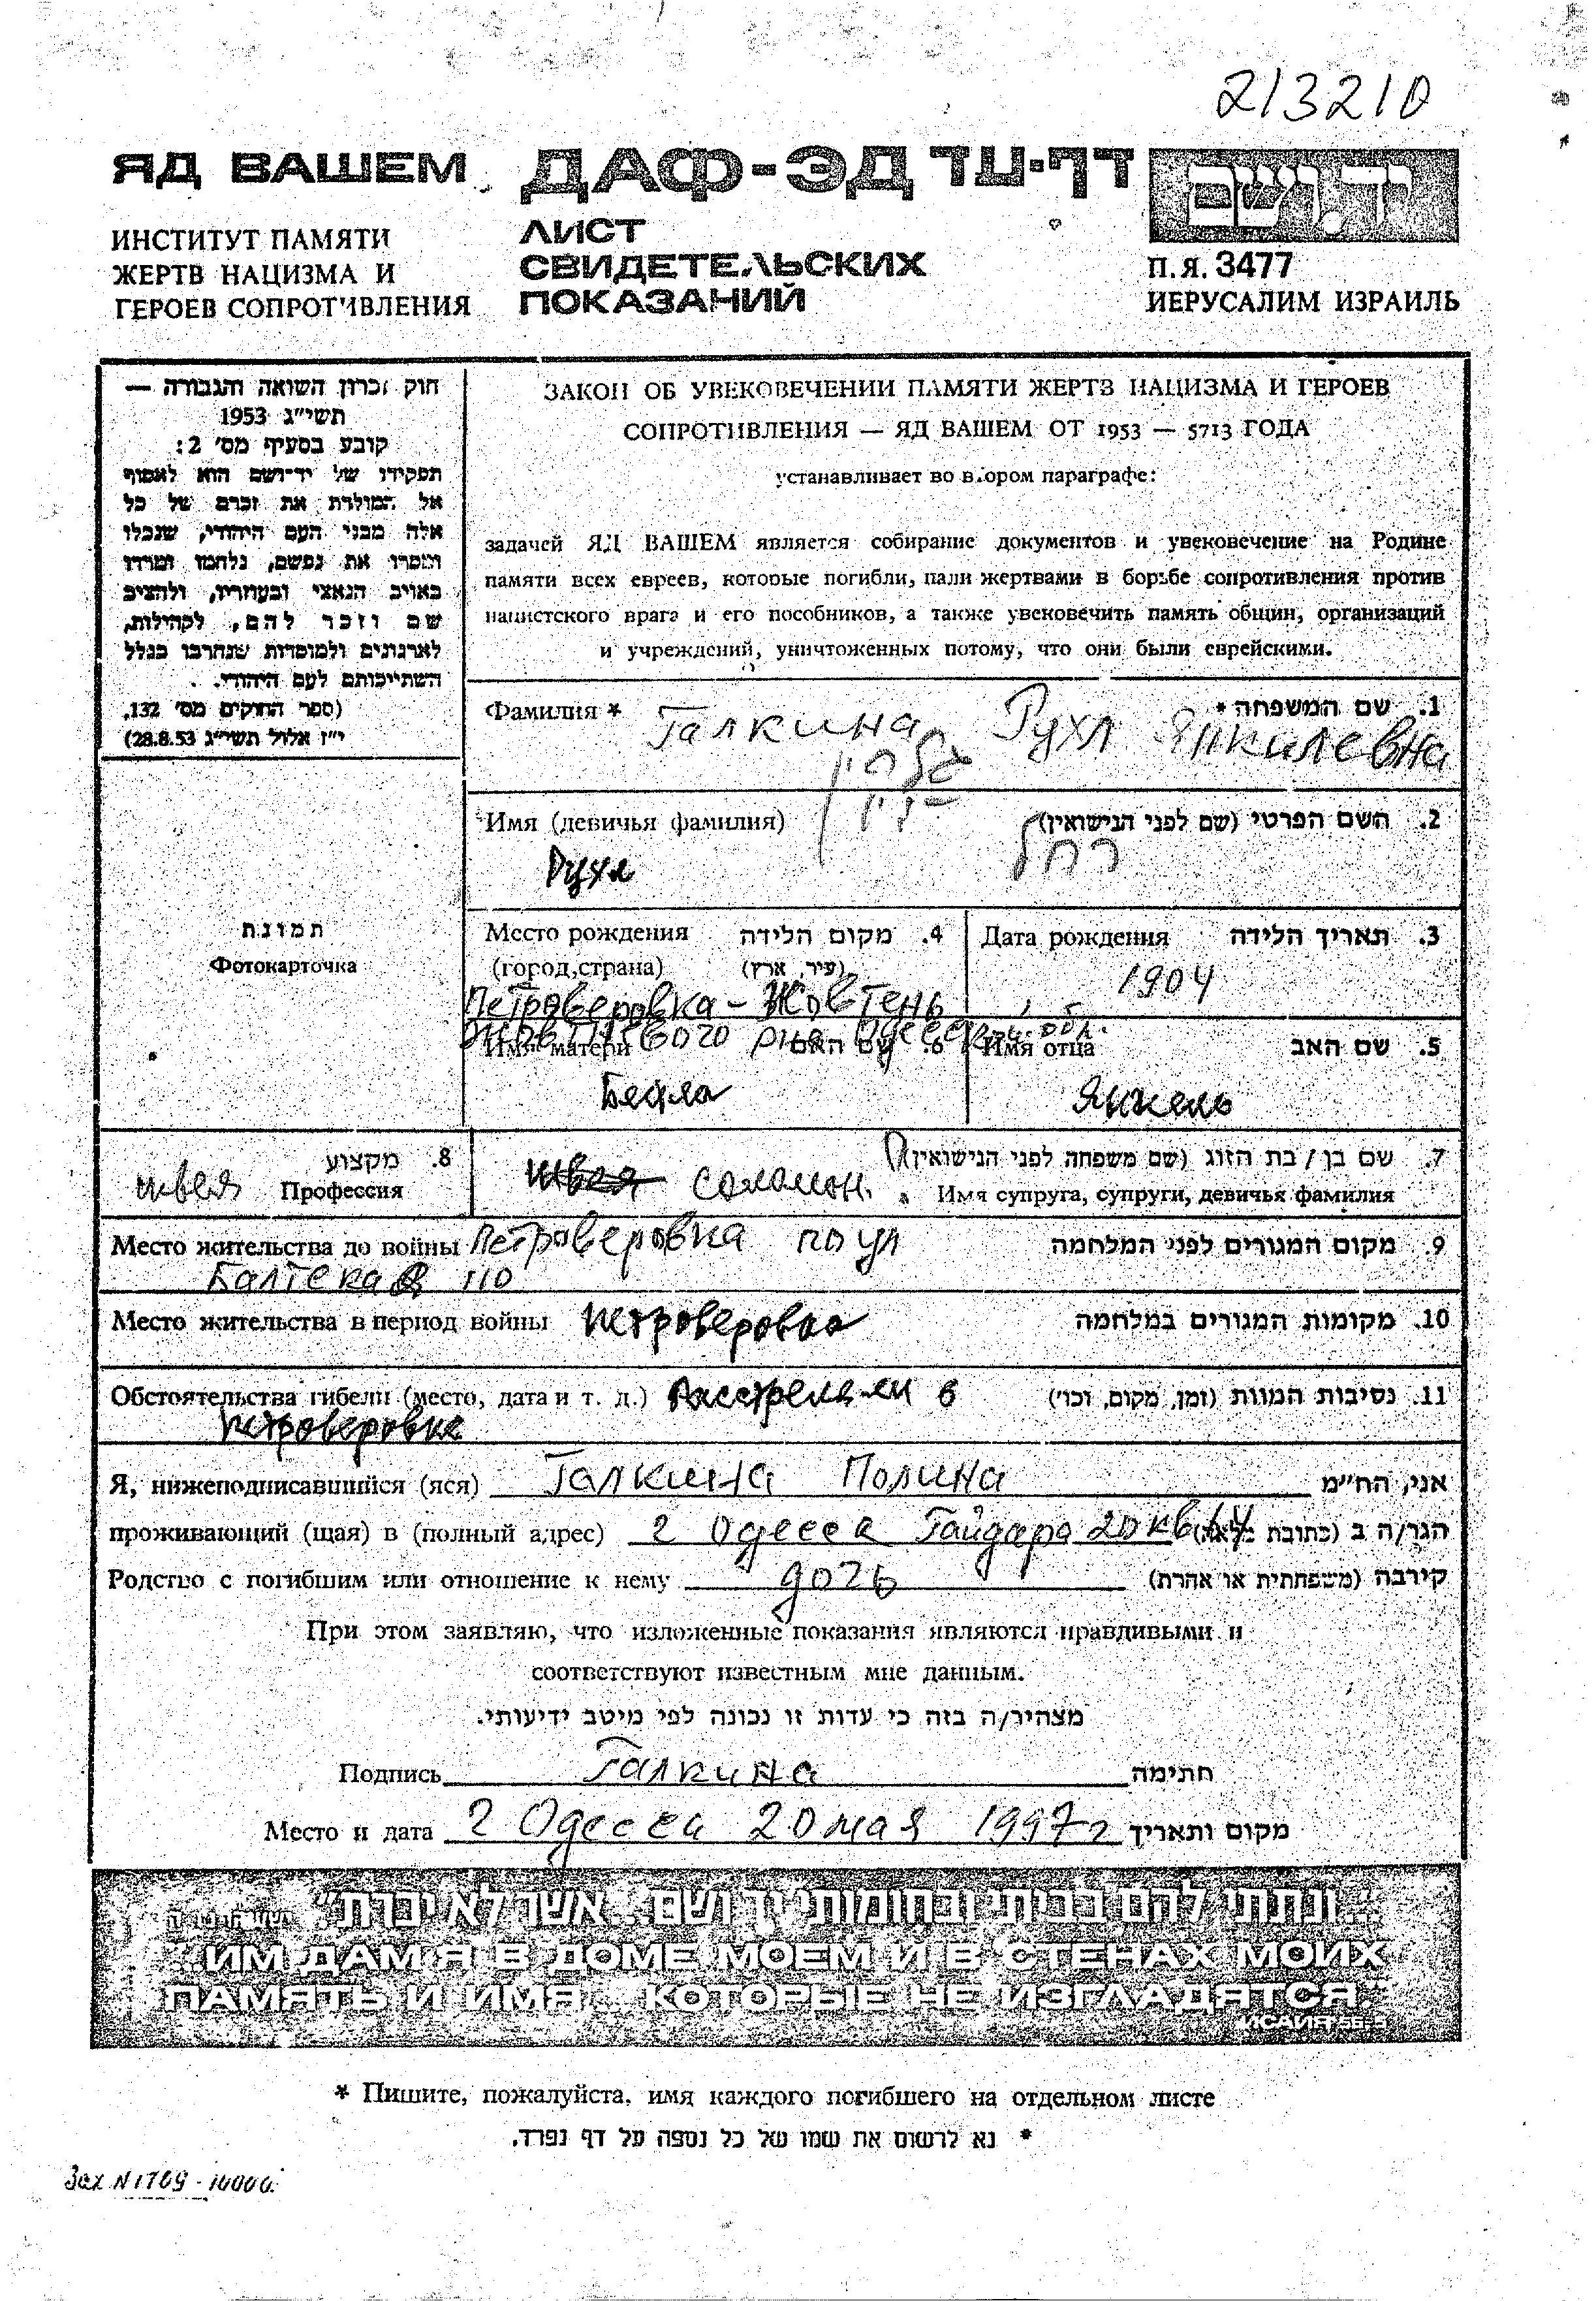 213210
ЯД ВАШЕМ ДАФ-ЭД דף-עד יד ושם
ИНСТИТУТ ПАМЯТИ
ЖЕРТВ НАЦИЗМА И
ГЕРОЕВ СОПРОТИВЛЕНИЯ
ЛИСТ
СВИДЕТЕЛЬСКИХ
ПОКАЗАНИЙ
П.Я. 3477
ИЕРУСАЛИМ ИЗРАИЛЬ
חוק זכרון השואה והגבורה —
תשי״ג 1953
קובע בסעיף מס׳ 2:
תפקידו של יד-ושם הוא לאסוף
אל המולדת את זכרם של כל
אלה מבני העם היהודי, שנפלו
ומסרו את נפשם, נלחמו ומרדו
באויב הנאצי ובעוזריו, ולהציב
שם וזכר להם, לקהילות,
לארגונים ולמוסדות שנחרבו בגלל
השתייכותם לעם היהודי.
(ספר החוקים מס׳ 132,
י״ז אלול תשי״ג 28.8.53)
ЗАКОН ОБ УВЕКОВЕЧЕНИИ ПАМЯТИ ЖЕРТВ НАЦИЗМА И ГЕРОЕВ
СОПРОТИВЛЕНИЯ — ЯД ВАШЕМ ОТ 1953 — 5713 ГОДА
устанавливает во втором параграфе:
задачей ЯД ВАШЕМ является собирание документов и увековечение на Родине
памяти всех евреев, которые погибли, пали жертвами в борьбе сопротивления против
нацистского врага и его пособников, а также увековечить память общин, организаций
и учреждений, уничтоженных потому, что они были еврейскими.
Фамилия * Галкина Рухл Янкилевна 1. שם המשפחה*
גלקין
Имя (девичья фамилия) 2. השם הפרטי (שם לפני הנישואין)
Рухл רחל
תמונת
Фотокарточка
Место рождения 4. מקום הלידה Дата рождения 3. תאריך הלידה
(город,страна) (עיר, ארץ) 1904
Петроверовка - Жовтень
Жовтневого р-на Одесск. обл.
Имя матери 6. שם האם Имя отца 5. שם האב
Бейла Янкель
8. מקצוע 7. שם בן / בת הזוג (שם משפחה לפני הנישואין)
швея Профессия швея соломон. Имя супруга, супруги, девичья фамилия
Место жительства до войны Петроверовка по ул 9. מקום המגורים לפני המלחמה
110
Место жительства в период войны Петроверовка 10. מקומות המגורים במלחמה
Обстоятельства гибели (место, дата и т. д.) Расстреляли в 11. נסיבות המוות (זמן, מקום, וכו׳)
Петроверовке
Я, нижеподписавшийся (яся) Галкина Полина אני, הח״מ
проживающий (щая) в (полный адрес) г Одесса Гайдара 20 кв 14 הגר/ה ב (כתובת מלאה)
Родство с погибшим или отношение к нему дочь קירבה (משפחתית או אחרת)
При этом заявляю, что изложенные показания являются правдивыми и
соответствуют известным мне данным.
מצהיר/ה בזה כי עדות זו נכונה לפי מיטב ידיעותי.
Подпись Галкина חתימה
Место и дата г Одесса 20 мая 1997 г מקום ותאריך
״...ונתתי להם בביתי ובחומותי יד ושם... אשר לא יכרת״
ИМ ДАМ Я В ДОМЕ МОЕМ И В СТЕНАХ МОИХ
ПАМЯТЬ И ИМЯ... КОТОРЫЕ НЕ ИЗГЛАДЯТСЯ."
ИСАИЯ 56-5
* Пишите, пожалуйста, имя каждого погибшего на отдельном листе
* נא לרשום את שמו של כל נספה על דף נפרד.
Зак N 1769 - 10000.